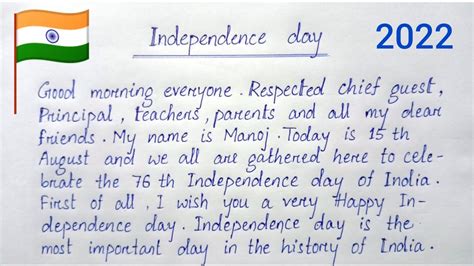 Independence day
2022
Good morning everyone. Respected chief guest,
Principal, teachers, parents and all my dear
friends. My name is Manoj. Today is 15 th
August and we all are gathered here to cele-
brate the 76 th Independence day of India.
First of all, I wish you a very Happy In-
dependence day. Independence day is the
most important day in the history of India.